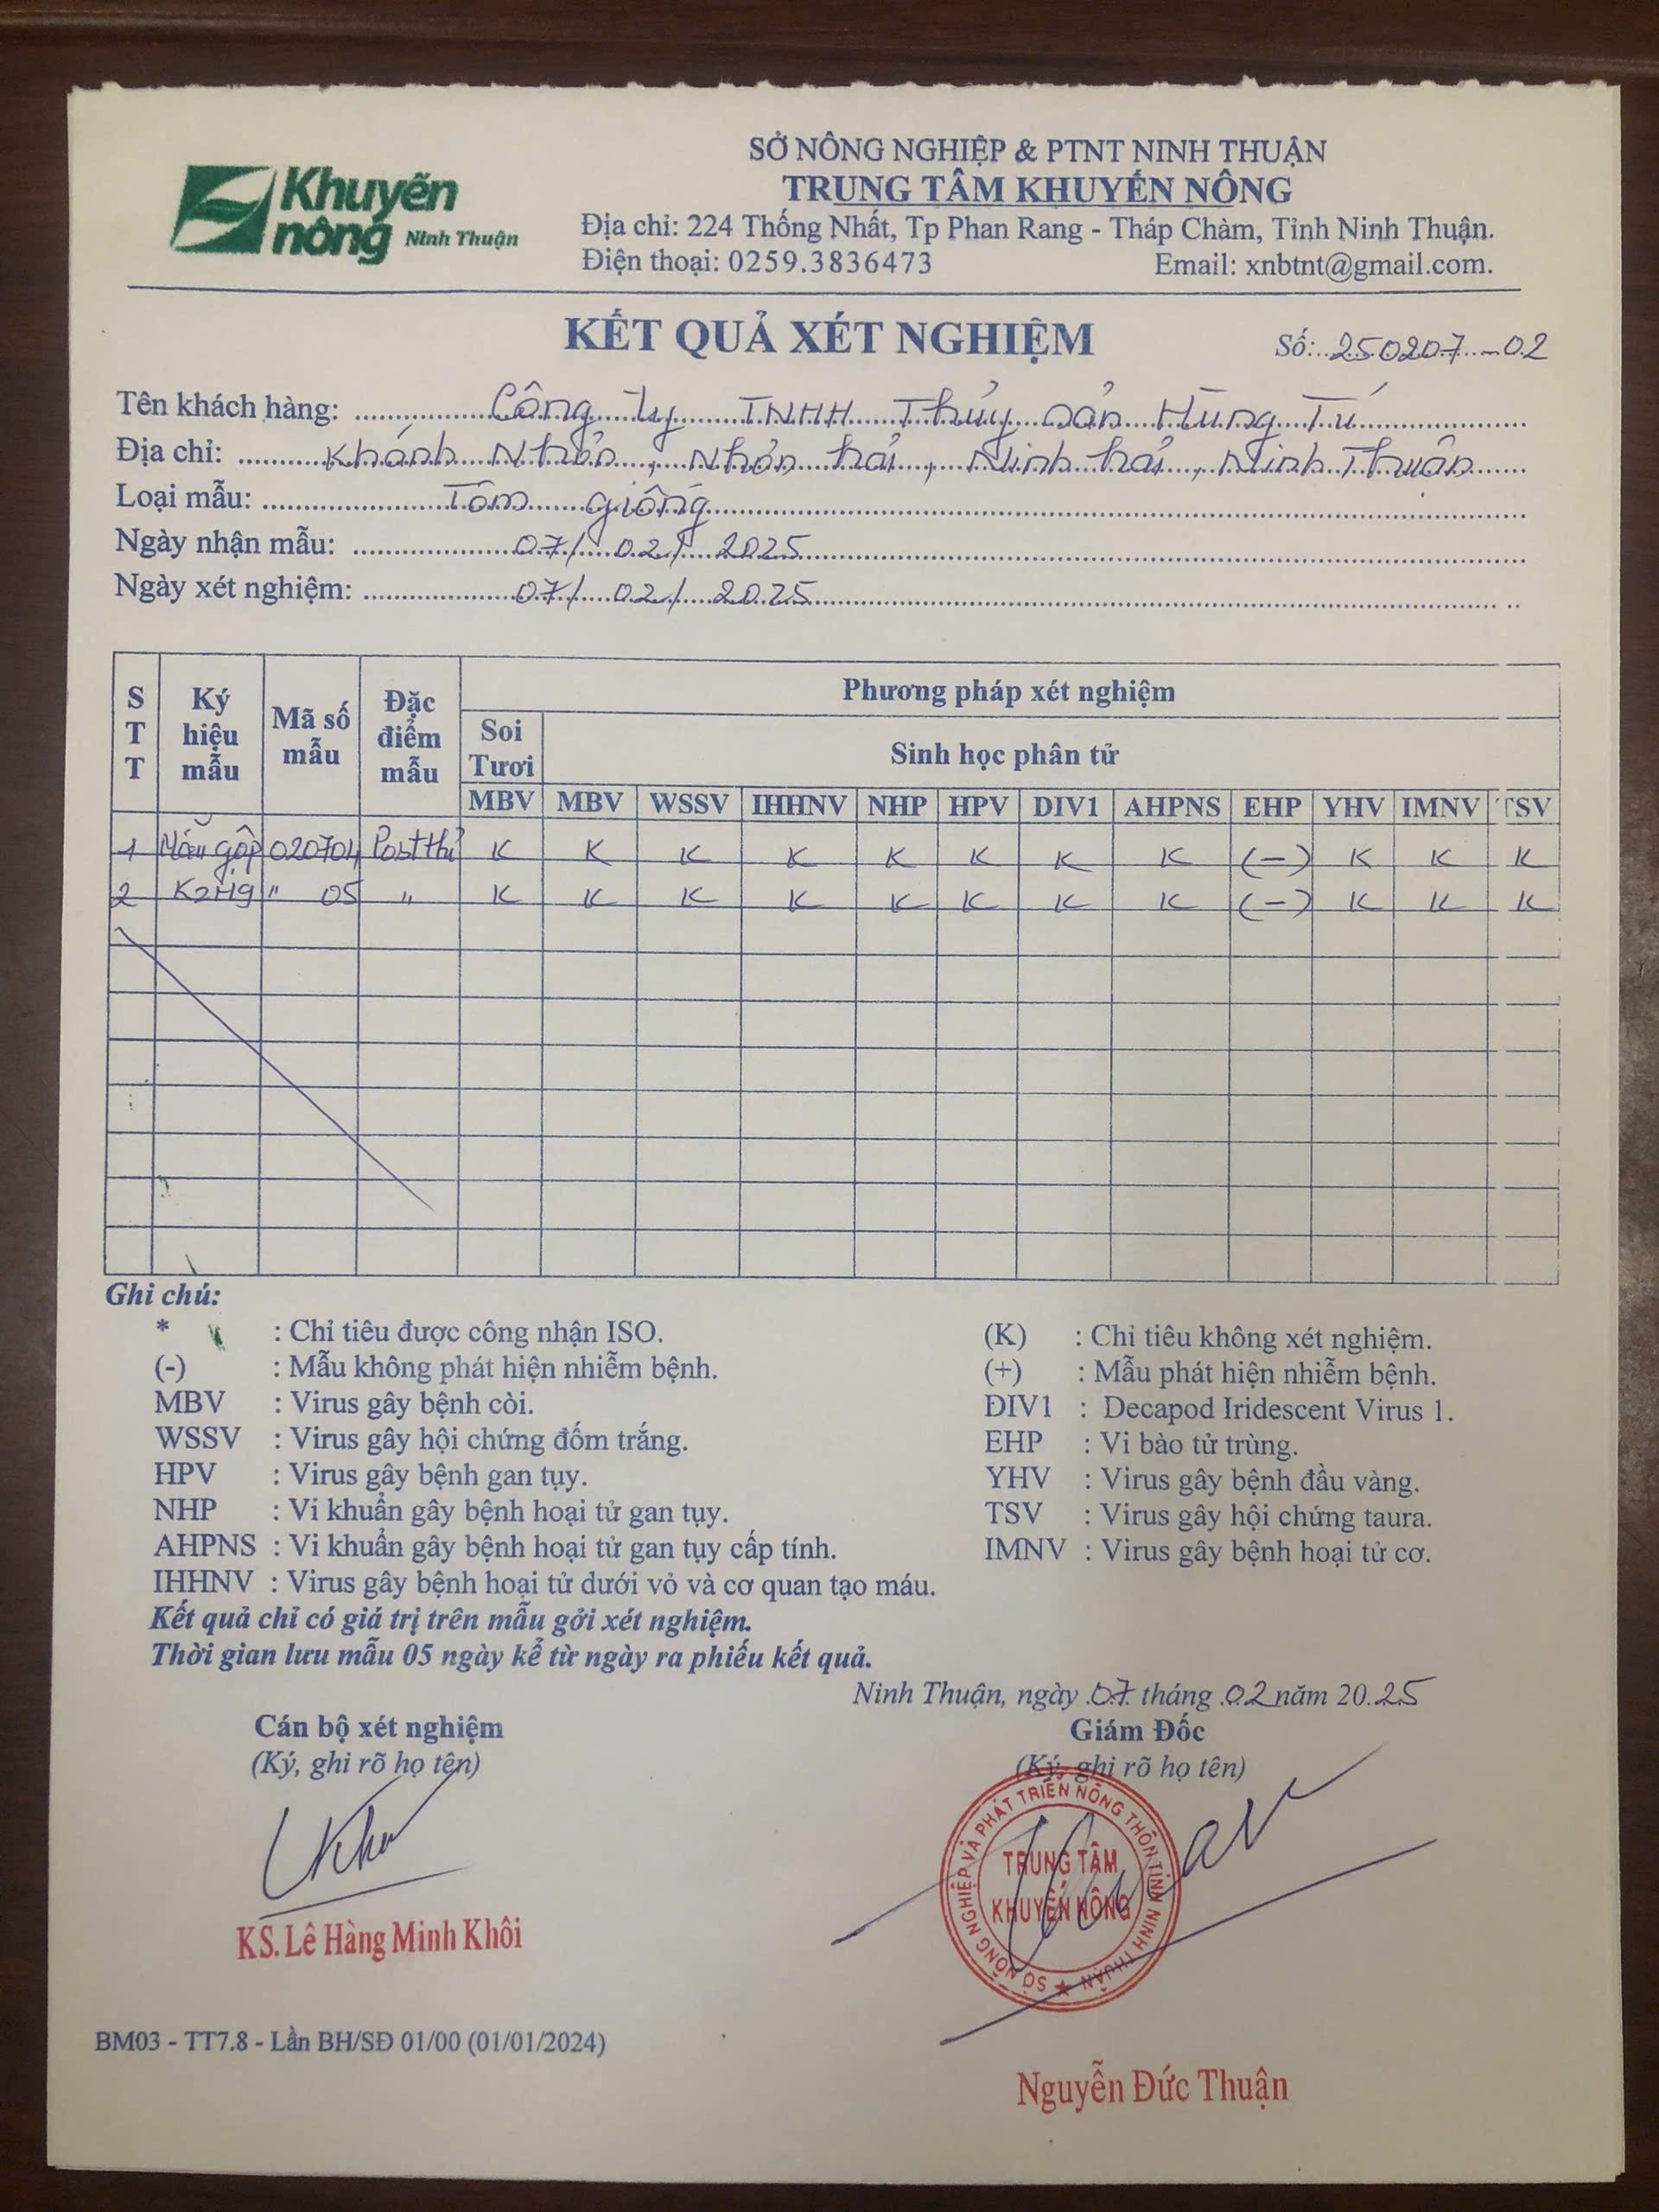 Khuyến
nông Ninh Thuận
SỞ NÔNG NGHIỆP & PTNT NINH THUẬN
TRUNG TÂM KHUYẾN NÔNG
Địa chỉ: 224 Thống Nhất, Tp Phan Rang - Tháp Chàm, Tỉnh Ninh Thuận.
Điện thoại: 0259.3836473 Email: xnbtnt@gmail.com.
KẾT QUẢ XÉT NGHIỆM Số: 250207-02
Tên khách hàng: Công ty TNHH Thủy sản Hùng Tú
Địa chỉ: Khánh Nhơn, Nhơn Hải, Ninh Hải, Ninh Thuận
Loại mẫu: Tôm giống
Ngày nhận mẫu: 07/02/2025
Ngày xét nghiệm: 07/02/2025
STT Ký hiệu mẫu Mã số mẫu Đặc điểm mẫu Phương pháp xét nghiệm
Soi Tươi Sinh học phân tử
MBV MBV WSSV IHHNV NHP HPV DIV1 AHPNS EHP YHV IMNV TSV
1 Mẫu gộp 020704 Postthị K K K K K K K K (-) K K K
2 " 05 " K K K K K K K K (-) K K K
Ghi chú:
* : Chỉ tiêu được công nhận ISO. (K) : Chỉ tiêu không xét nghiệm.
(-) : Mẫu không phát hiện nhiễm bệnh. (+) : Mẫu phát hiện nhiễm bệnh.
MBV : Virus gây bệnh còi. DIV1 : Decapod Iridescent Virus 1.
WSSV : Virus gây hội chứng đốm trắng. EHP : Vi bào tử trùng.
HPV : Virus gây bệnh gan tụy. YHV : Virus gây bệnh đầu vàng.
NHP : Vi khuẩn gây bệnh hoại tử gan tụy. TSV : Virus gây hội chứng taura.
AHPNS : Vi khuẩn gây bệnh hoại tử gan tụy cấp tính. IMNV : Virus gây bệnh hoại tử cơ.
IHHNV : Virus gây bệnh hoại tử dưới vỏ và cơ quan tạo máu.
Kết quả chỉ có giá trị trên mẫu gởi xét nghiệm.
Thời gian lưu mẫu 05 ngày kể từ ngày ra phiếu kết quả.
Ninh Thuận, ngày 07 tháng 02 năm 2025
Cán bộ xét nghiệm Giám Đốc
(Ký, ghi rõ họ tên) (Ký, ghi rõ họ tên)
SỞ NÔNG NGHIỆP VÀ PHÁT TRIỂN NÔNG THÔN TỈNH NINH THUẬN
TRUNG TÂM
KHUYẾN NÔNG
KS. Lê Hàng Minh Khôi
BM03 - TT7.8 - Lần BH/SĐ 01/00 (01/01/2024)
Nguyễn Đức Thuận